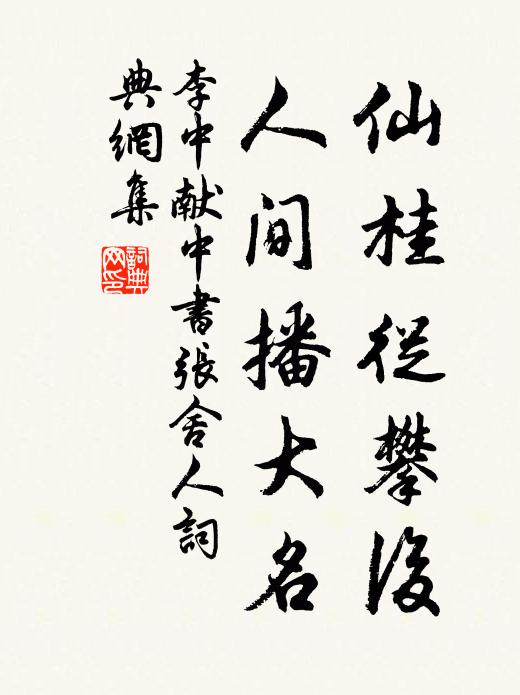 仙桂從攀後
人间播大名
李中献中書張舍人詞
典網集
詞典
网印